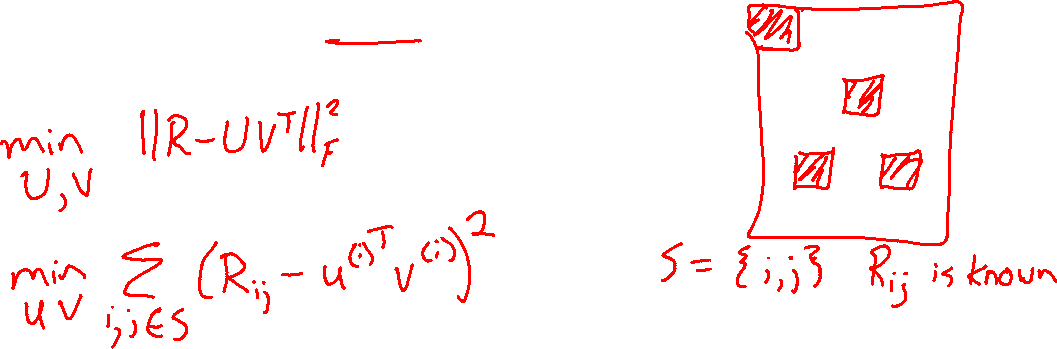 min U,V ||R-UV^T||_F^2
min UV Σ i,j∈S (R_ij - u^(i)^T v^(j))^2
S = {i,j} R_ij is known